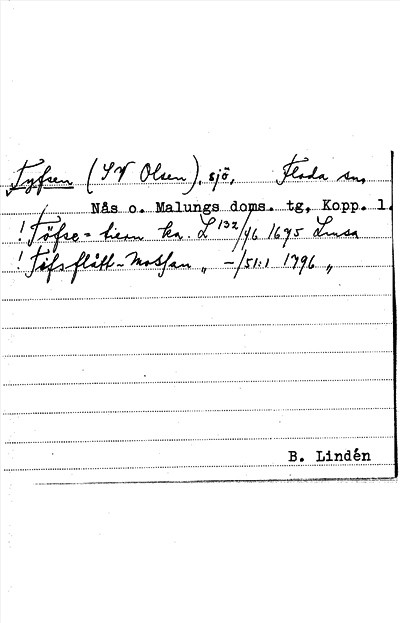 Tyfsen (SV Olsen), sjö, Floda sn,
Nås o. Malungs doms. tg, Kopp. l.
! Töfse=tiern ka. L 132/46 1675 Lmsa
! Töfsflått-Mossan „ -/51:1 1796 „
B. Lindén